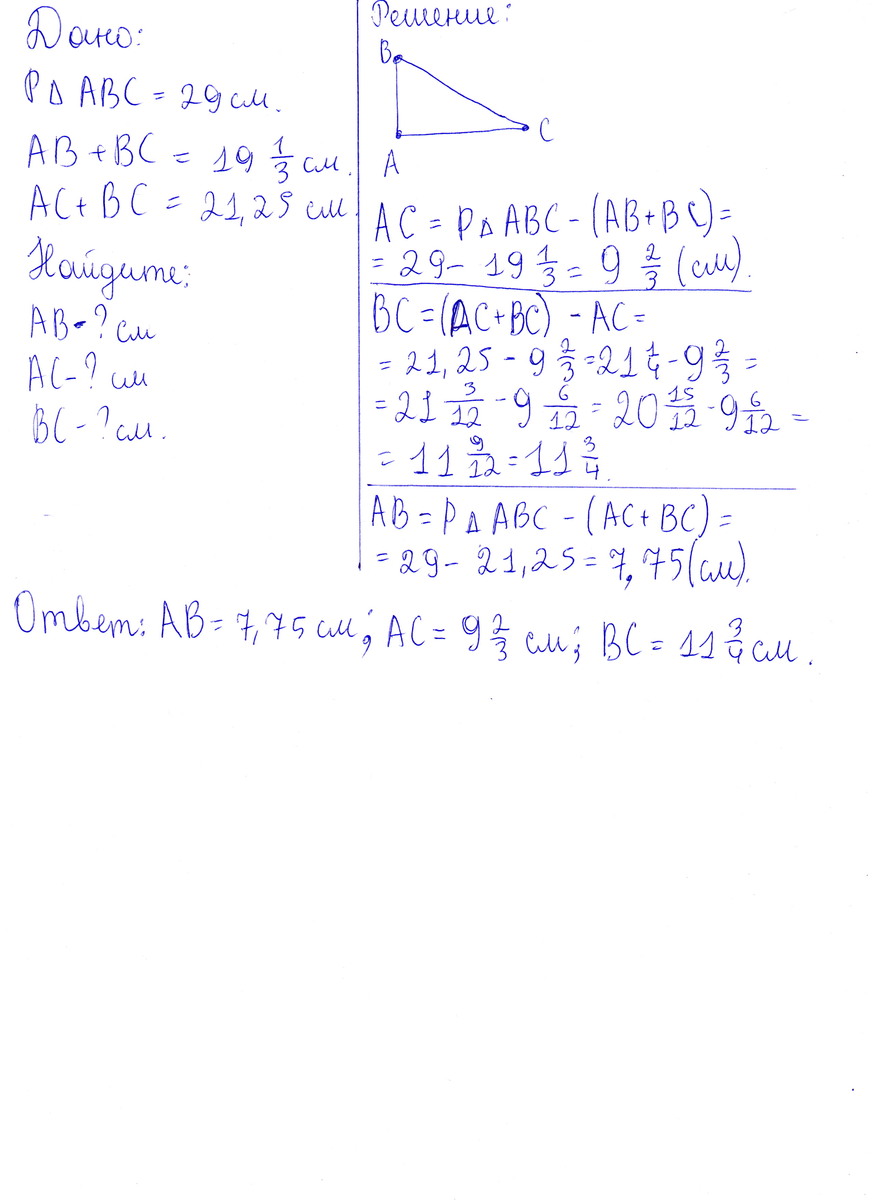 Дано:
P△ ABC = 29 см.
AB + BC = 19 1/3 см.
AC + BC = 21,25 см.
Найдите:
AB - ? см
AC - ? см
BC - ? см.
Решение:
B
C
A
AC = P△ ABC - (AB + BC) =
= 29 - 19 1/3 = 9 2/3 (см).
BC = (AC + BC) - AC =
= 21,25 - 9 2/3 = 21 1/4 - 9 2/3 =
= 21 3/12 - 9 6/12 = 20 15/12 - 9 6/12 =
= 11 9/12 = 11 3/4.
AB = P△ ABC - (AC + BC) =
= 29 - 21,25 = 7,75 (см).
Ответ: AB = 7,75 см; AC = 9 2/3 см; BC = 11 3/4 см.